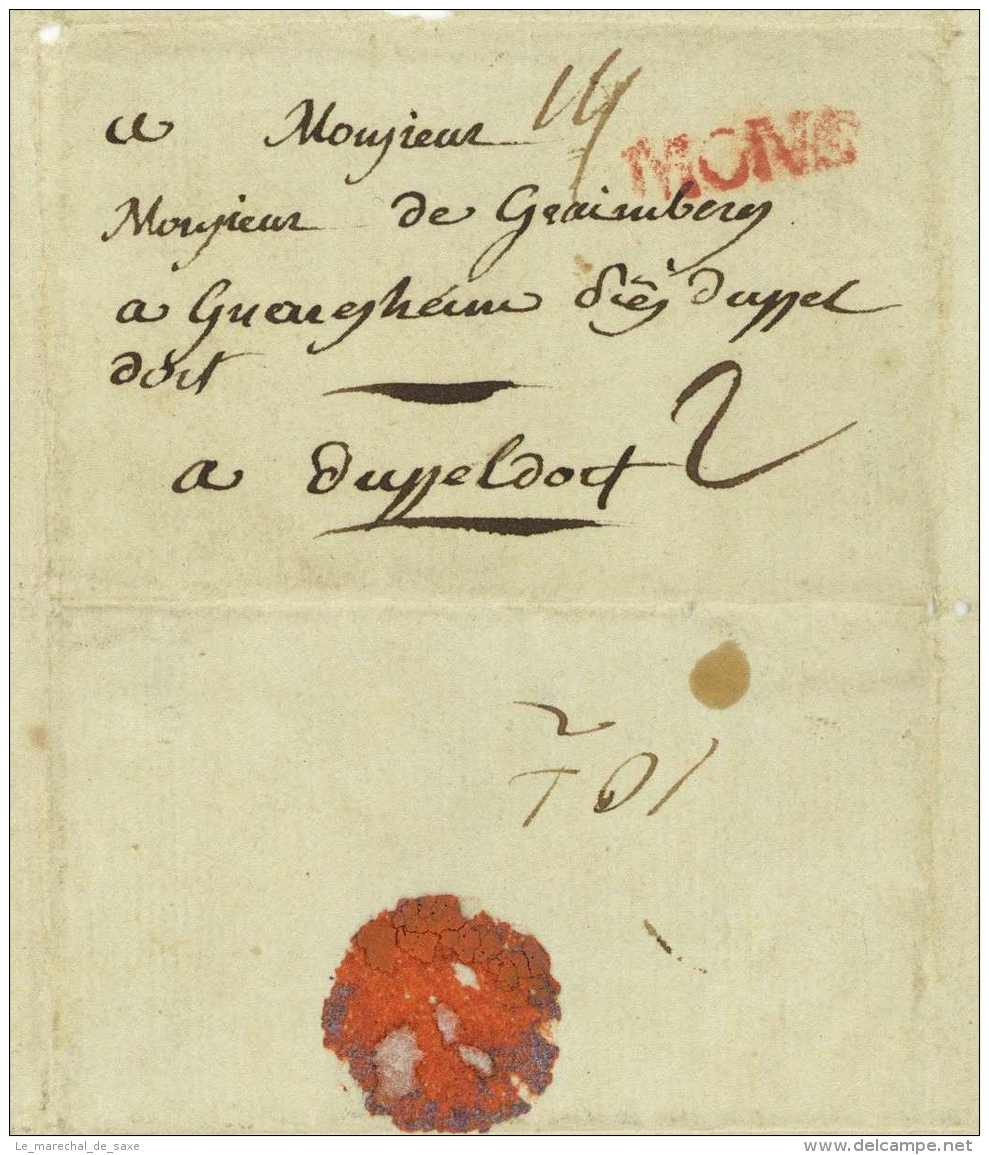 a Monsieur
MONS
Monsieur de Graimberg
a Guerresheim près dussel
dorf
a dusseldorf 2
2
Le_marechal_de_saxe
www.delcampe.net